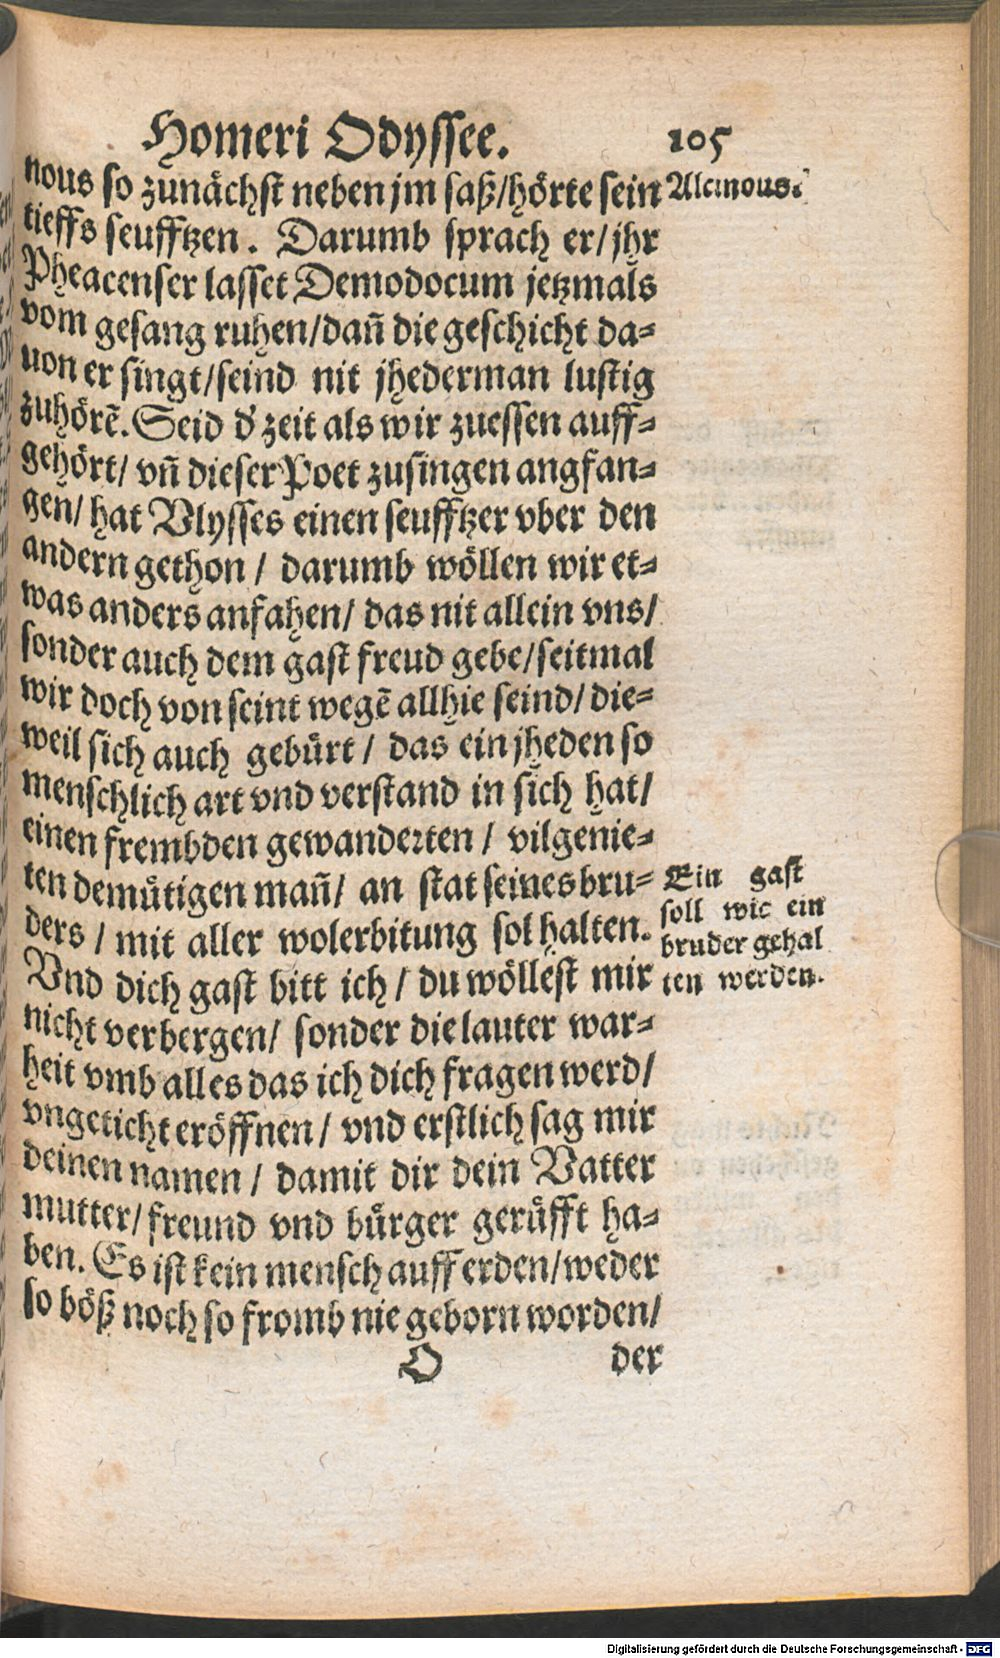 Homeri Odyssee. 105
nous so zunächst neben jm saß/hörte sein
Alcinous.
tieffs seufftzen. Darumb sprach er/jhr
Pheacenser lasset Demodocum jetzmals
vom gesang ruhen/dañ die geschicht da-
uon er singt/seind nit jhederman lustig
zuhörẽ. Seid d' zeit als wir zuessen auff-
gehört/ vñ dieser Poet zusingen angfan-
gen/ hat Vlysses einen seufftzer vber den
andern gethon/ darumb wöllen wir et-
was anders anfahen/ das nit allein vns/
sonder auch dem gast freud gebe/seitmal
wir doch von seint wegẽ allhie seind/ die-
weil sich auch gebürt/ das ein jheden so
menschlich art vnd verstand in sich hat/
einen frembden gewanderten/ vilgenie-
ten demütigen mañ/ an stat seines bru-
ders/ mit aller wolerbitung sol halten.
Ein gast
soll wie ein
bruder gehal
ten werden.
Vnd dich gast bitt ich/ du wöllest mir
nicht verbergen/ sonder die lauter war-
heit vmb alles das ich dich fragen werd/
vngeticht eröffnen/ vnd erstlich sag mir
deinen namen/ damit dir dein Vatter
mutter/freund vnd bürger gerüfft ha-
ben. Es ist kein mensch auff erden/weder
so böß noch so fromb nie geborn worden/
O der
Digitalisierung gefördert durch die Deutsche Forschungsgemeinschaft - DFG